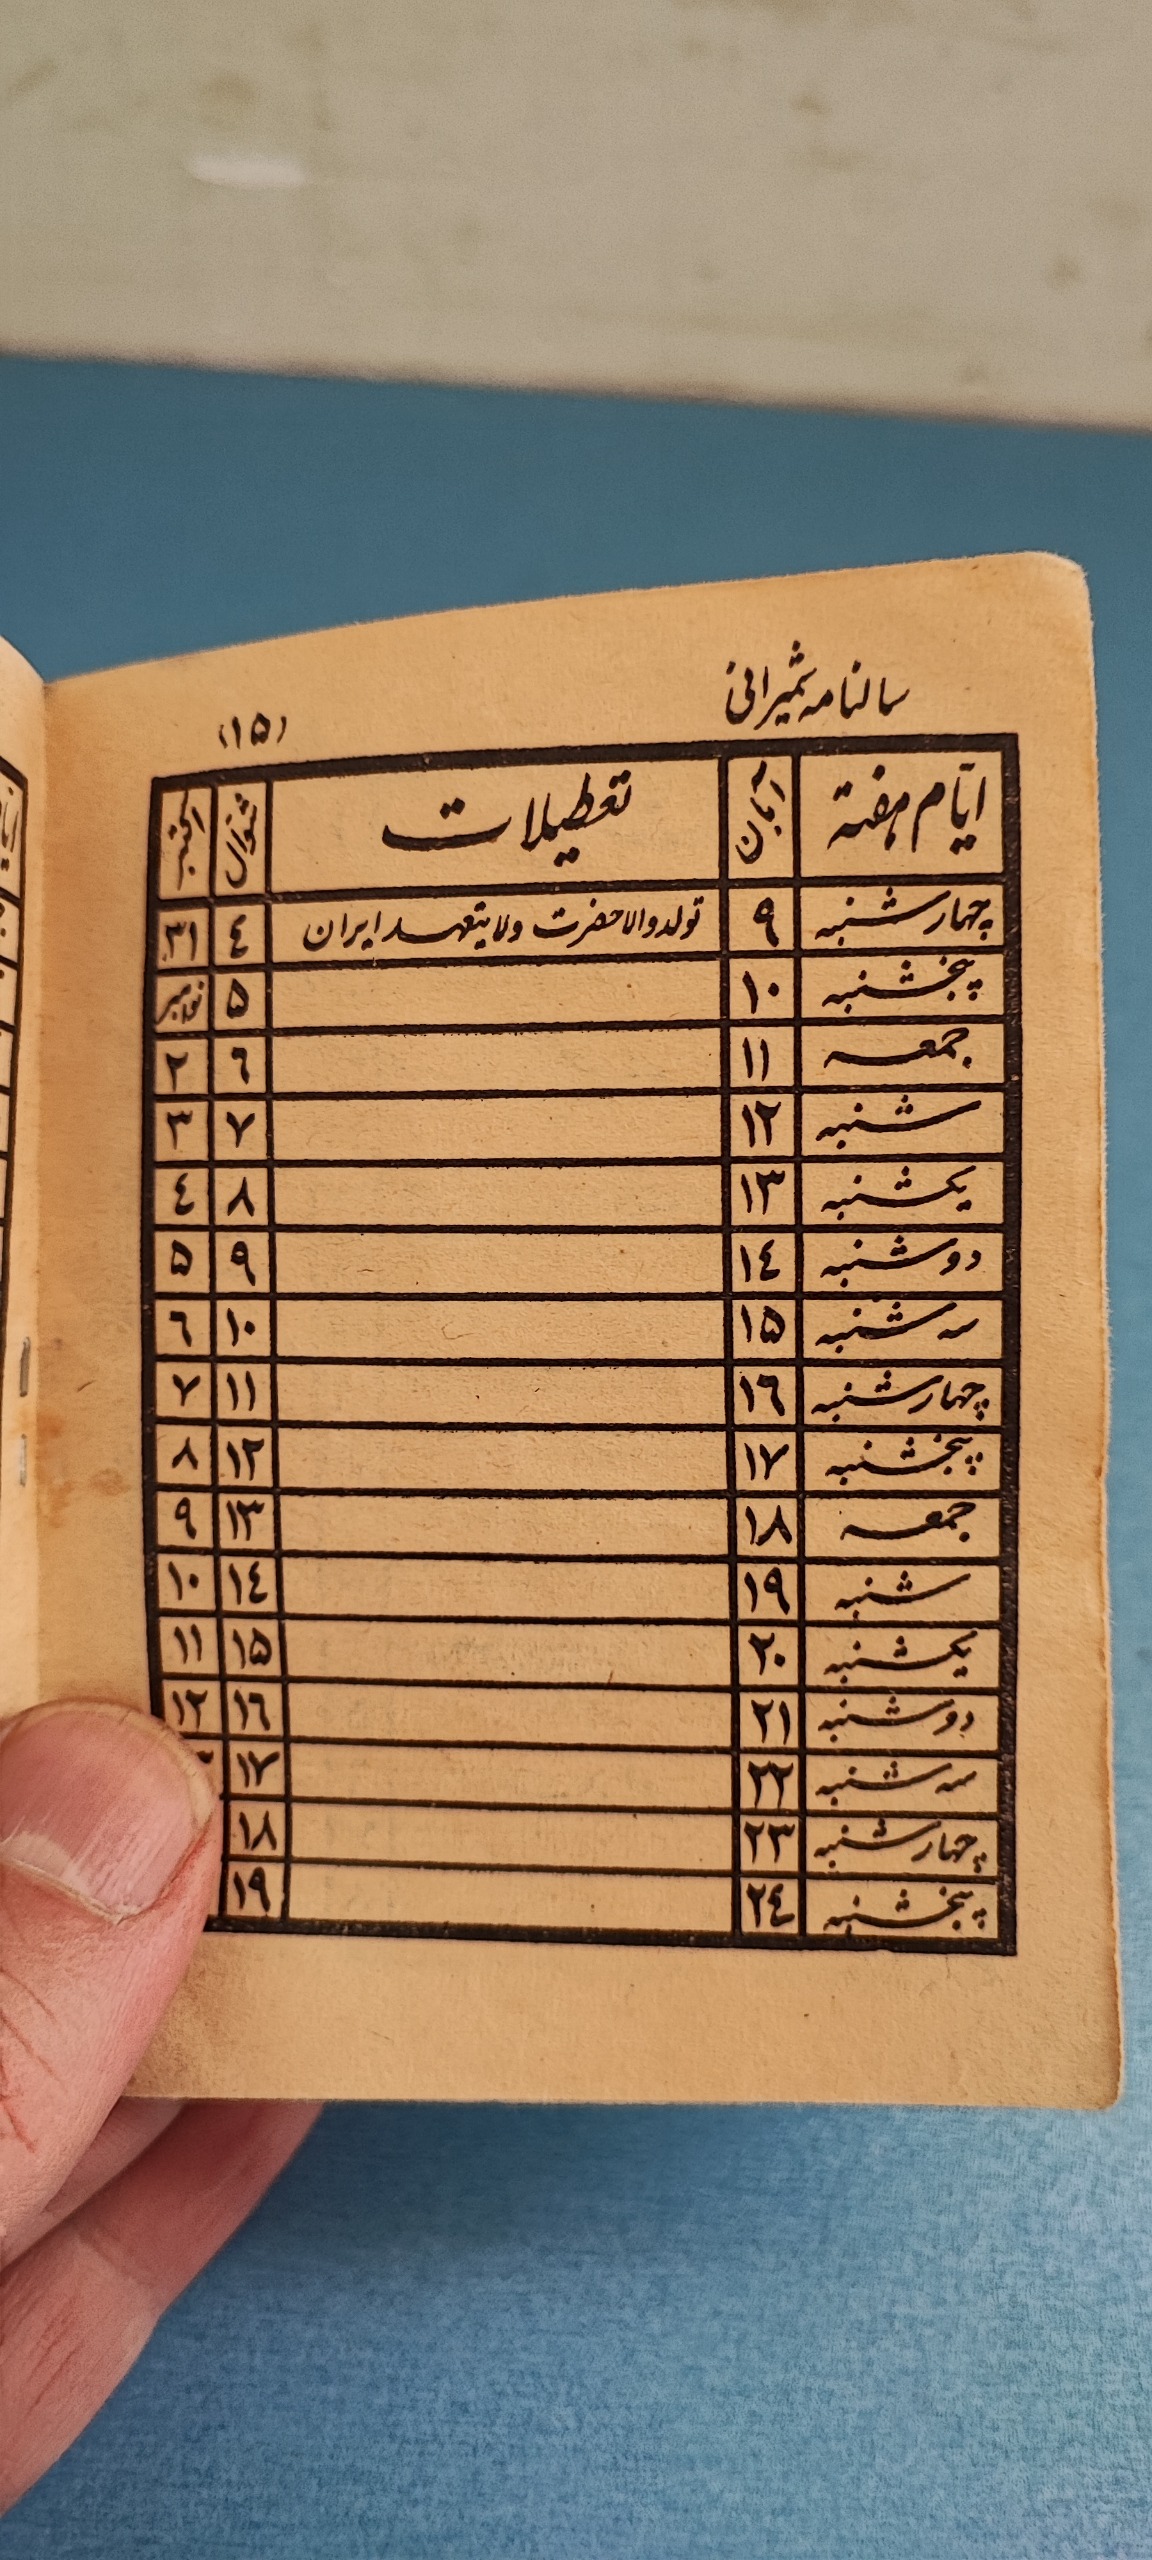 سالنامه شمیرانی
(۱۵)
ایّام هفته آبان تعطیلات شوال اکتبر
چهارشنبه ۹ تولد والاحضرت ولایتعهد ایران ٤ ۳۱
پنجشنبه ۱۰ ۵ نوامبر
جمعه ۱۱ ٦ ۲
شنبه ۱۲ ۷ ۳
یکشنبه ۱۳ ۸ ٤
دوشنبه ۱٤ ۹ ۵
سه شنبه ۱۵ ۱۰ ٦
چهارشنبه ۱٦ ۱۱ ۷
پنجشنبه ۱۷ ۱۲ ۸
جمعه ۱۸ ۱۳ ۹
شنبه ۱۹ ۱٤ ۱۰
یکشنبه ۲۰ ۱۵ ۱۱
دوشنبه ۲۱ ۱٦ ۱۲
سه شنبه ۲۲ ۱۷
چهارشنبه ۲۳ ۱۸
پنجشنبه ۲٤ ۱۹